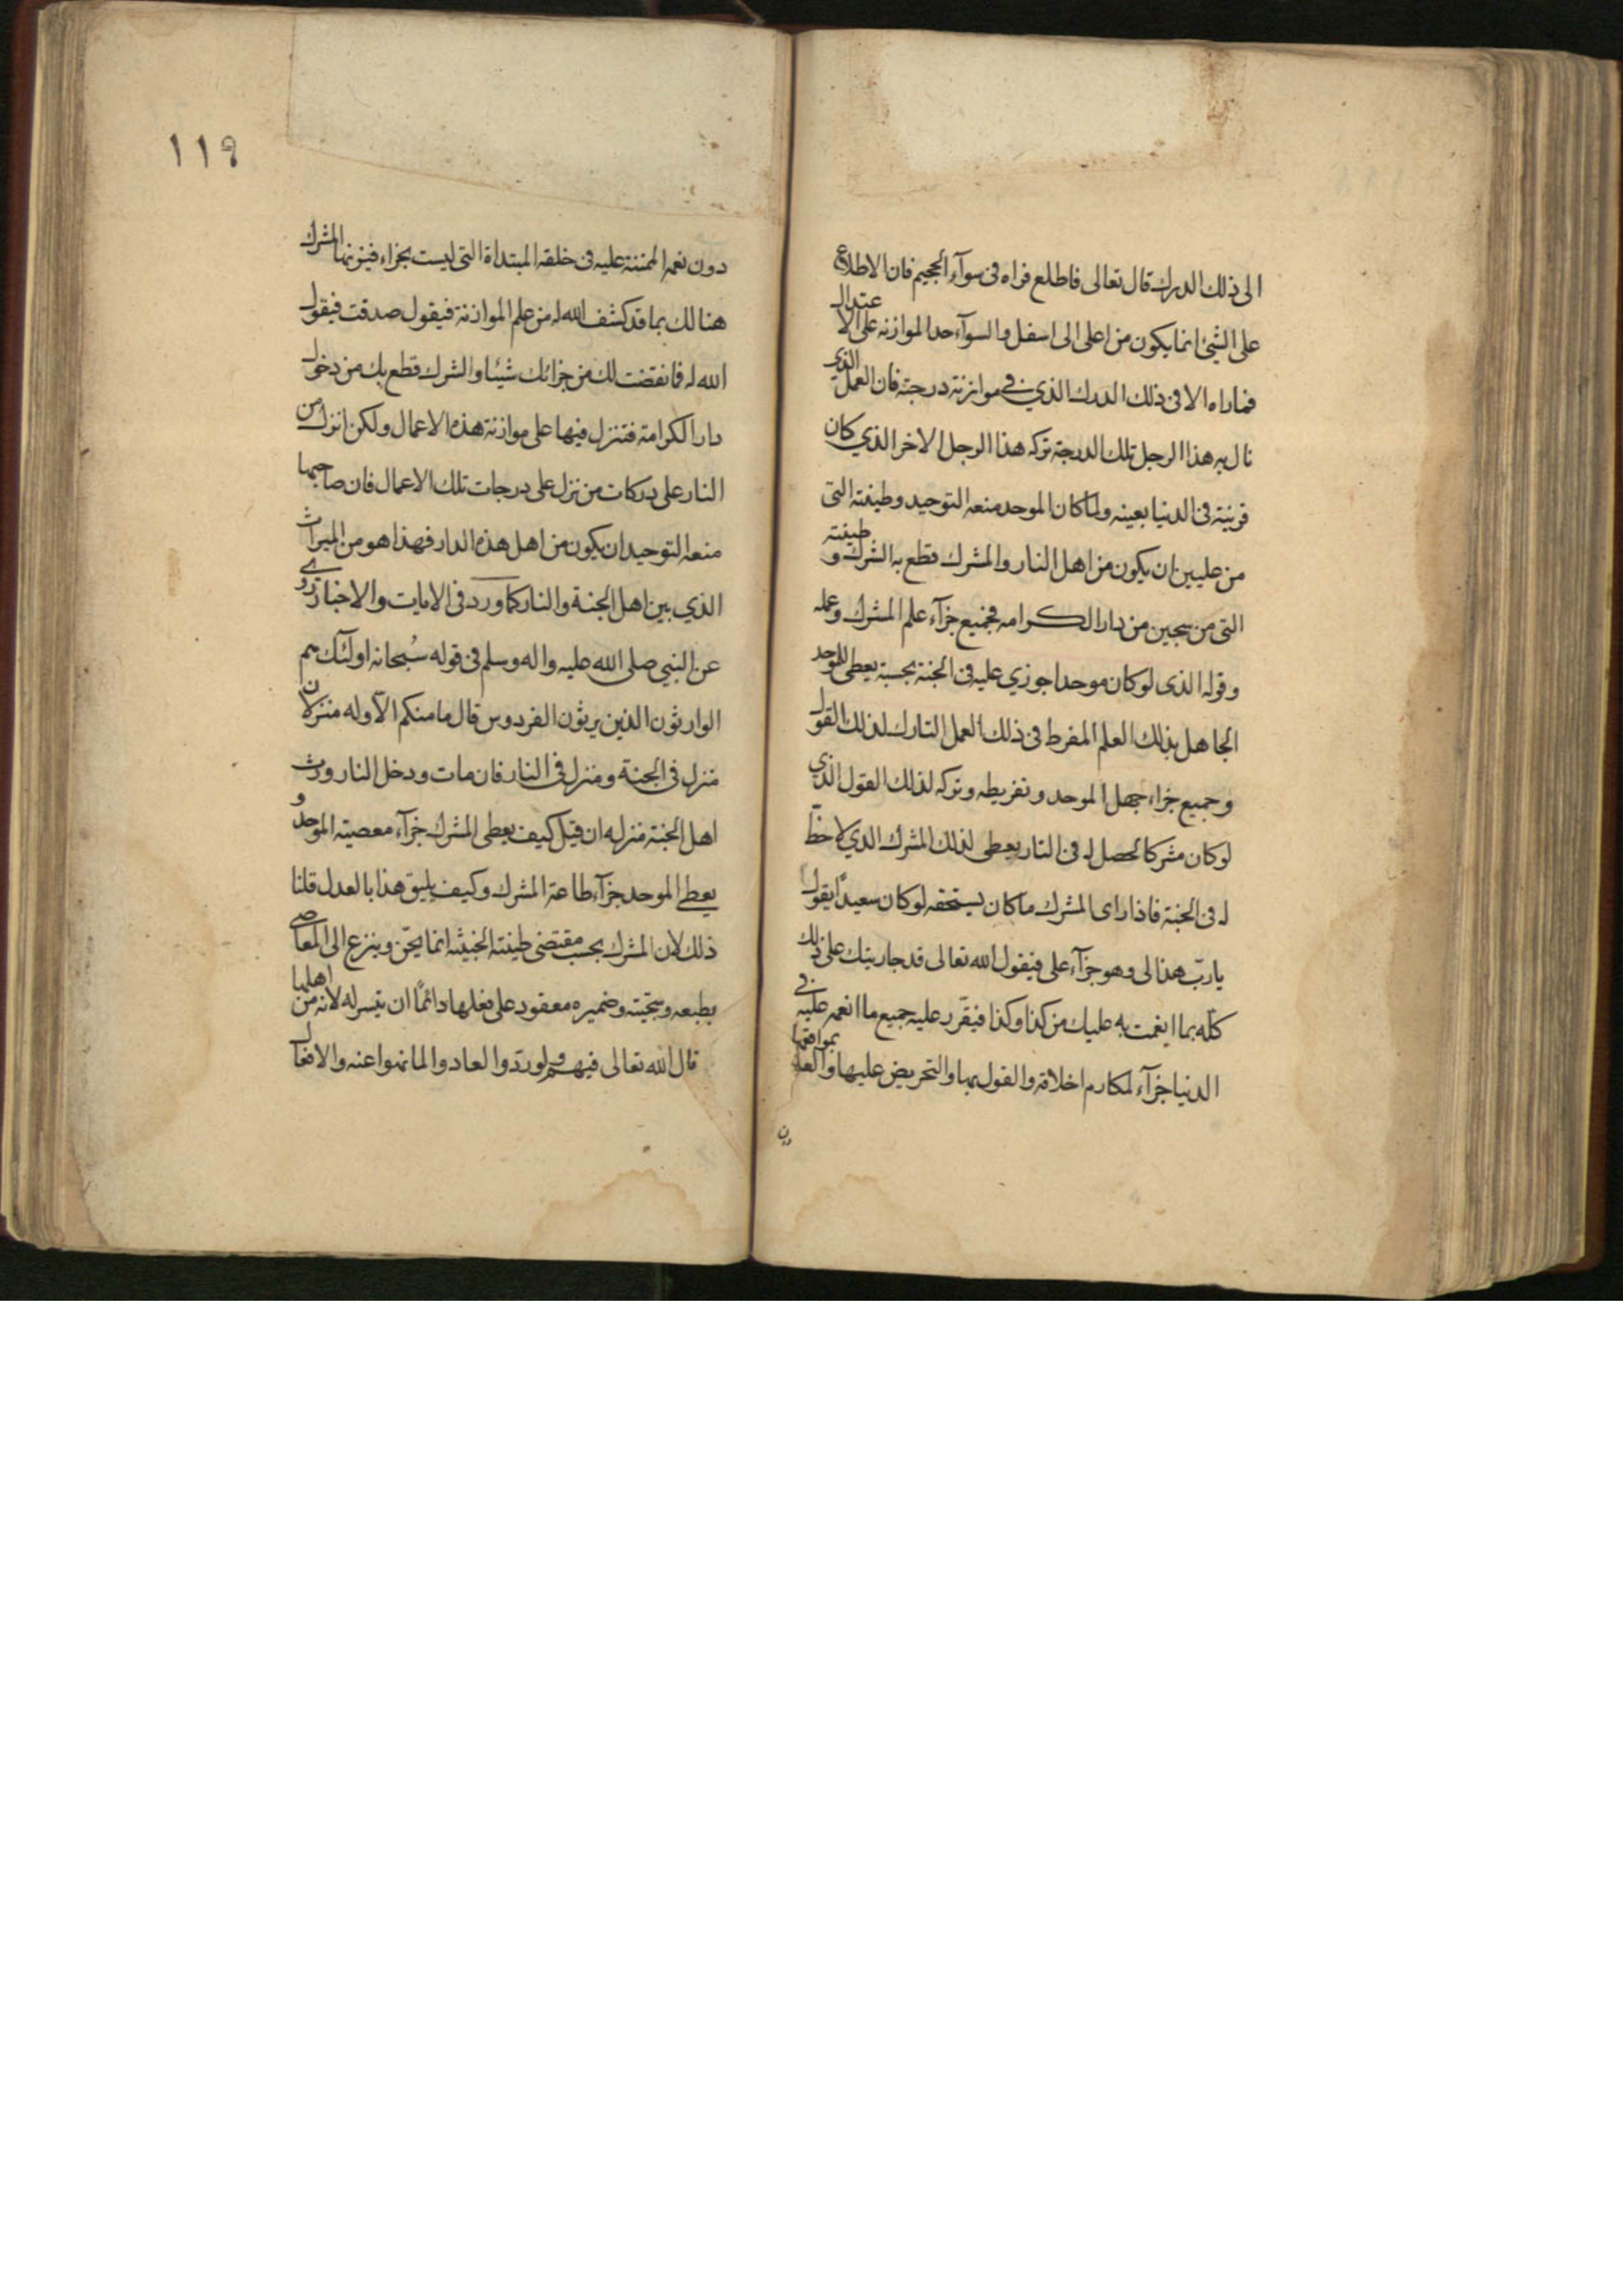 الى ذلك الدرك قال تعالى فاطلع فراه فى سوآء الجحيم فان الاطلاع
على الشيئ انما يكون من اعلى الى اسفل والسوآء حد الموازنه على الاعتدال
فما راه الا فى ذلك الدرك الذي فى موازنة درجته فان العمل الذي
نال به هذا الرجل تلك الدرجة تركه هذا الرجل الاخر الذي كان
قرينه فى الدنيا بعينه ولما كان الموحد منعه التوحيد وطينته التى
من عليين ان يكون من اهل النار والمشرك قطع به الشرك وطينته
التى من سجين من دار الكرامه فجميع جزآء علم المشرك وعمله
وقوله الذى لو كان موحدا جوزي عليه فى الجنة بحسبه يعطى للموحد
الجاهل بذلك العلم المفرط فى ذلك العمل التارك لذلك القول
وجميع جزاء جهل الموحد وتفريطه وتركه لذلك القول الذي
لو كان مشركا لحصل له فى النار يعطى لذلك المشرك الذي لا حظّ
له فى الجنة فاذا راى المشرك ما كان يستحقه لو كان سعيداً يقول
يا ربّ هذا لى وهو جزآء على فيقول الله تعالى قد جازيتك على ذلك
كلّه بما انعمت به عليك من كذا وكذا فيقرّر عليه جميع ما انعم عليه فى
الدنيا جزآء لمكارم اخلاقه والقول بها والتحريض عليها والعلم بمواقعها
دون
١١٩
دون نعمه الممتنة عليه فى خلقه المبتداة التى ليست بجزاء فيزنها المشرك
هنالك بما قد كشف الله له من علم الموازنة فيقول صدقت فيقول
الله له فما نقضت لك من جزائك شيئا والشرك قطع بك من دخول
دار الكرامة فتنزل فيها على موازنة هذه الاعمال ولكن انزل من
النار على دركات من نزل على درجات تلك الاعمال فان صاحبها
منعه التوحيد ان يكون من اهل هذه الدار فهذا هو من الميراث
الذي بين اهل الجنة والنار كما ورد فى الايات والاخبار روي
عن النبي صلى الله عليه واله وسلم فى قوله سُبحانه اولئك هم
الوارثون الذين يرثون الفردوس قال ما منكم الاّ وله منزلان
منزل فى الجنة ومنزل فى النار فان مات ودخل النار ورث
اهل الجنة منزله ان قيل كيف يعطى المشرك جزآء معصيته الموحد و
يعطى الموحد جزآء طاعة المشرك وكيف يليق هذا بالعدل قلنا
ذلك لان المشرك بحسب مقتضى طينته الخبيثه انما يحنّ وينزع الى المعاصي
بطبعه وسجيّته وضميره معقود على فعلها دائماً ان تيسر له لانه من اهلها
قال الله تعالى فيهم ولو ردّوا لعادوا لما نهوا عنه والافعال